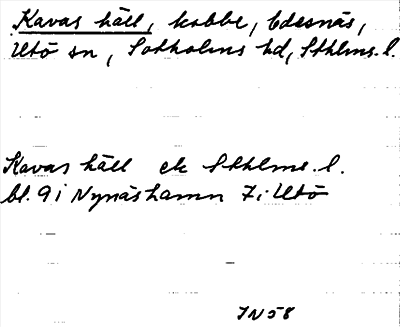 Kavas häll, kobbe, Edesnäs,
Utö sn, Sotholms hd, Sthlms. l.
Kavas häll ek Sthlms. l.
bl. 9 i Nynäshamn 7 i Utö
IN 58